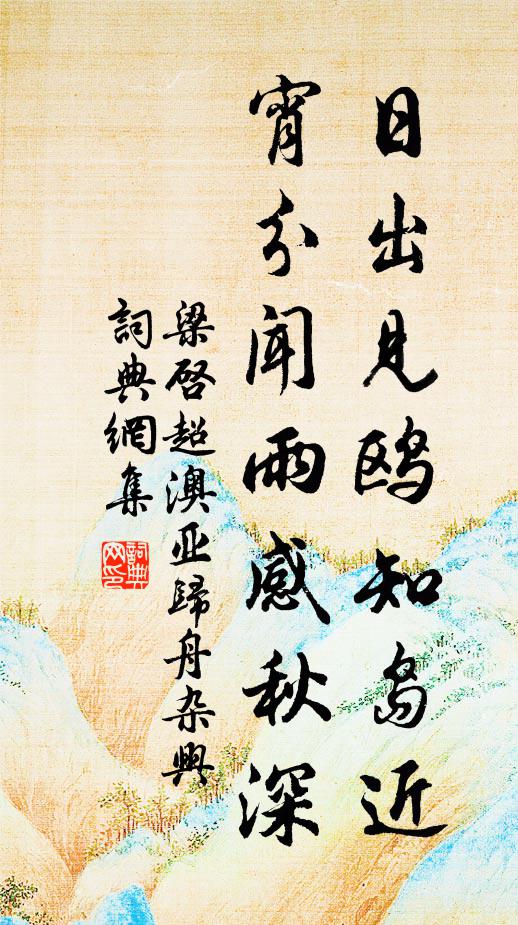 日出見鷗知島近
宵分聞雨感秋深
梁啓超澳亚歸舟杂興
詞典網集
詞典網印